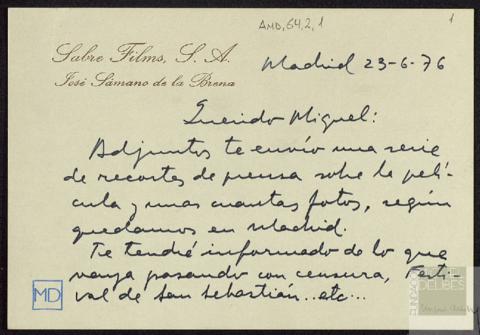 AMD, 64, 2, 1
1
Sabre Films, S. A.
José Sámano de la Brena
Madrid 23-6-76
Querido Miguel:
Adjuntos te envío una serie
de recortes de prensa sobre la pelí-
cula y unas cuantas fotos, según
quedamos en Madrid.
Te tendré informado de lo que
vaya pasando con censura, Festi-
val de San Sebastián..etc...
MD
FUNDACIÓN
DELIBES